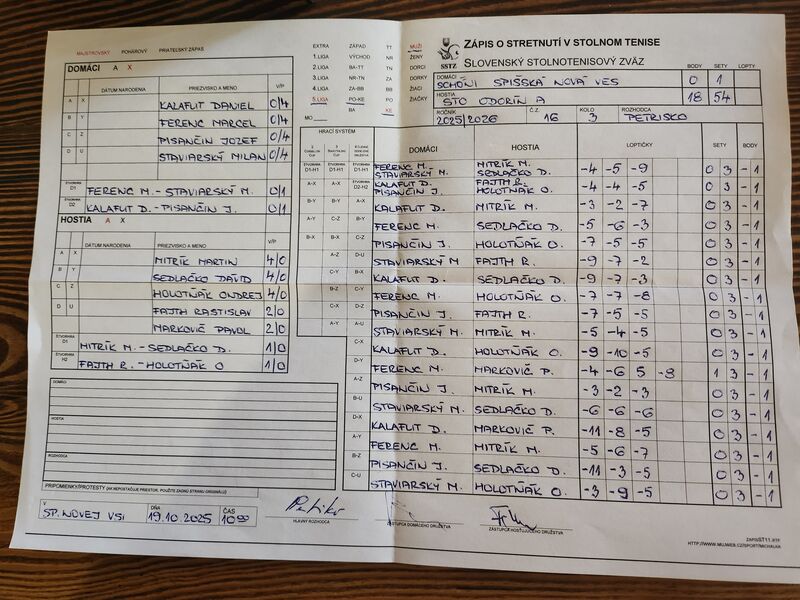 MAJSTROVSKÝ POHÁROVÝ PRIATEĽSKÝ ZÁPAS
DOMÁCI A X
DÁTUM NARODENIA PRIEZVISKO A MENO V/P
A X KALAFUT DANIEL 0/4
B Y FERENC MARCEL 0/4
C Z PISANČIN JOZEF 0/4
D U STAVIARSKÝ MILAN 0/4
ŠTVORHRA D1 FERENC M. - STAVIARSKÝ M. 0/1
ŠTVORHRA D2 KALAFUT D. - PISANČIN J. 0/1
HOSTIA A X
DÁTUM NARODENIA PRIEZVISKO A MENO V/P
A X MITRÍK MARTIN 4/0
B Y SEDLAČKO DÁVID 4/0
C Z HOLOTŇÁK ONDREJ 4/0
D U FAJTH RASTISLAV 2/0
MARKOVIČ PAVOL 2/0
ŠTVORHRA D1 MITRÍK M. - SEDLAČKO D. 1/0
ŠTVORHRA H2 FAJTH R. - HOLOTŇÁK O 1/0
DOMÁCI
HOSTIA
ROZHODCA
PRIPOMIENKY/PROTESTY (AK NEPOSTAČUJE PRIESTOR, POUŽITE ZADNÚ STRANU ORIGINÁLU)
V SP. NOVEJ VSI DŇA 19.10.2025 ČAS 10:00
HLAVNÝ ROZHODCA
ZÁSTUPCA DOMÁCEHO DRUŽSTVA
ZÁSTUPCA HOSŤUJÚCEHO DRUŽSTVA
EXTRA ZÁPAD TT MUŽI
1.LIGA VÝCHOD NR ŽENY
2.LIGA BA-TT TN DORCI
3.LIGA NR-TN ZA DORKY
4.LIGA ZA-BB BB ŽIACI
5.LIGA PO-KE PO ŽIAČKY
MO BA KE
SSTZ
ZÁPIS O STRETNUTÍ V STOLNOM TENISE
SLOVENSKÝ STOLNOTENISOVÝ ZVÄZ
BODY SETY LOPTY
DOMÁCI SCHÖNI SPIŠSKÁ NOVÁ VES 0 1
HOSTIA STO ODORÍN A 18 54
ROČNÍK 2025/2026 Č.Z. 16 KOLO 3 ROZHODCA PETRISKO
HRACÍ SYSTÉM
DOMÁCI HOSTIA LOPTIČKY SETY BODY
FERENC M. STAVIARSKÝ M. MITRÍK M. SEDLAČKO D. -4 -5 -9 0 3 -1
KALAFUT D. PISANČIN J. FAJTH R. HOLOTŇÁK O. -4 -4 -5 0 3 -1
KALAFUT D. MITRÍK M. -3 -2 -7 0 3 -1
FERENC M. SEDLAČKO D. -5 -6 -3 0 3 -1
PISANČIN J. HOLOTŇÁK O. -7 -5 -5 0 3 -1
STAVIARSKÝ M FAJTH R. -9 -7 -2 0 3 -1
KALAFUT D. SEDLAČKO D. -9 -7 -3 0 3 -1
FERENC M. HOLOTŇÁK O. -7 -7 -8 0 3 -1
PISANČIN J. FAJTH R. -7 -5 -5 0 3 -1
STAVIARSKÝ M. MITRÍK M. -5 -4 -5 0 3 -1
KALAFUT D. HOLOTŇÁK O. -9 -10 -5 0 3 -1
FERENC M. MARKOVIČ P. -4 -6 5 -8 1 3 -1
PISANČIN J. MITRÍK M. -3 -2 -3 0 3 -1
STAVIARSKÝ M. SEDLAČKO D. -6 -6 -6 0 3 -1
KALAFUT D. MARKOVIČ P. -11 -8 -5 0 3 -1
FERENC M. MITRÍK M. -5 -6 -7 0 3 -1
PISANČIN J. SEDLAČKO D. -11 -3 -5 0 3 -1
STAVIARSKÝ M. HOLOTŇÁK O. -3 -9 -5 0 3 -1
ZAPISST11.RTF
HTTP://WWW.MUJWEB.CZ/SPORT/MICHALKA